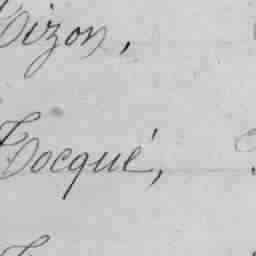 Tizon,
Tocqué,